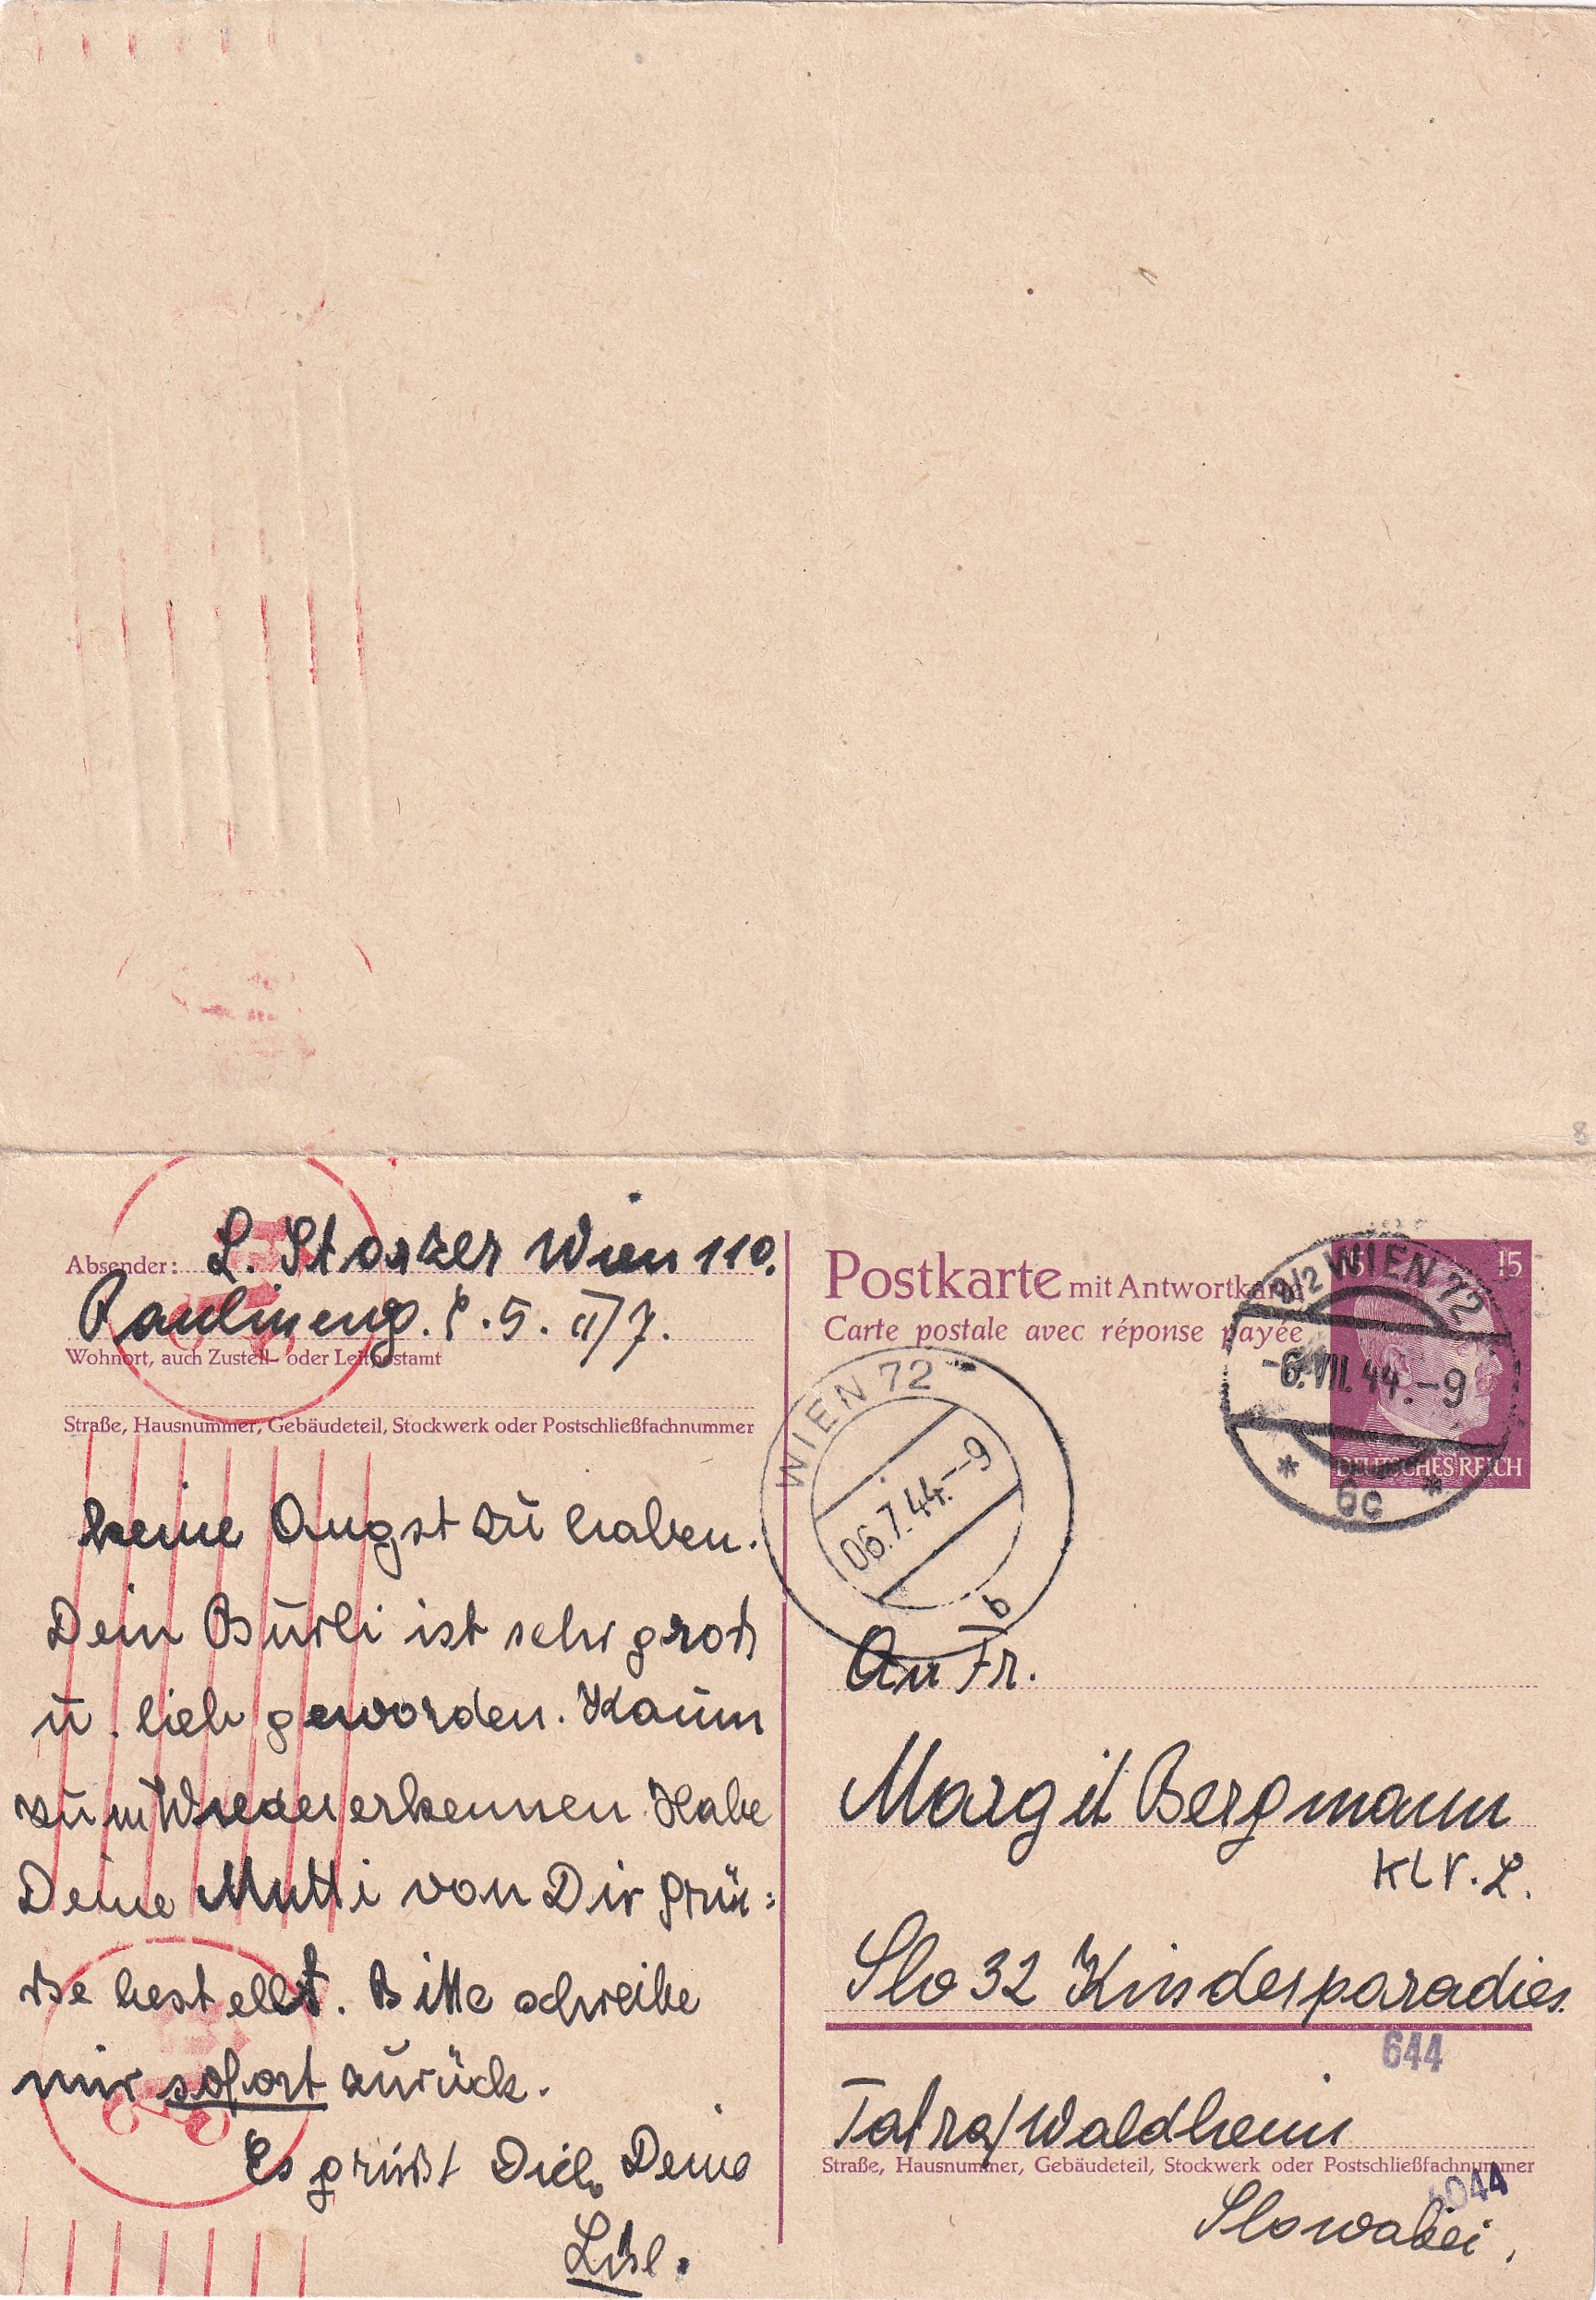 Absender: L. Storzer Wien 110.
Paulineng. 5. II/7.
Wohnort, auch Zustell- oder Leitpostamt
Straße, Hausnummer, Gebäudeteil, Stockwerk oder Postschließfachnummer
keine Angst zu haben.
Dein Burli ist sehr groß
u. lieb geworden. Kaum
zum Wiedererkennen. Habe
Deine Mutti von Dir Grü=
sse bestellt. Bitte schreibe
mir sofort zurück.
Es grüßt Dich Deine
Lisl.
Postkarte mit Antwortkarte
Carte postale avec réponse payée
15
DEUTSCHES REICH
9/2 WIEN 72
-6.VII.44.-9
* 6c *
WIEN 72
06.7.44.--9
b
An Fr.
Margit Bergmann
KLV. L.
Slo 32 Kinderparadies.
644
Tatra/Waldheim
Straße, Hausnummer, Gebäudeteil, Stockwerk oder Postschließfachnummer
Slowakei.
8